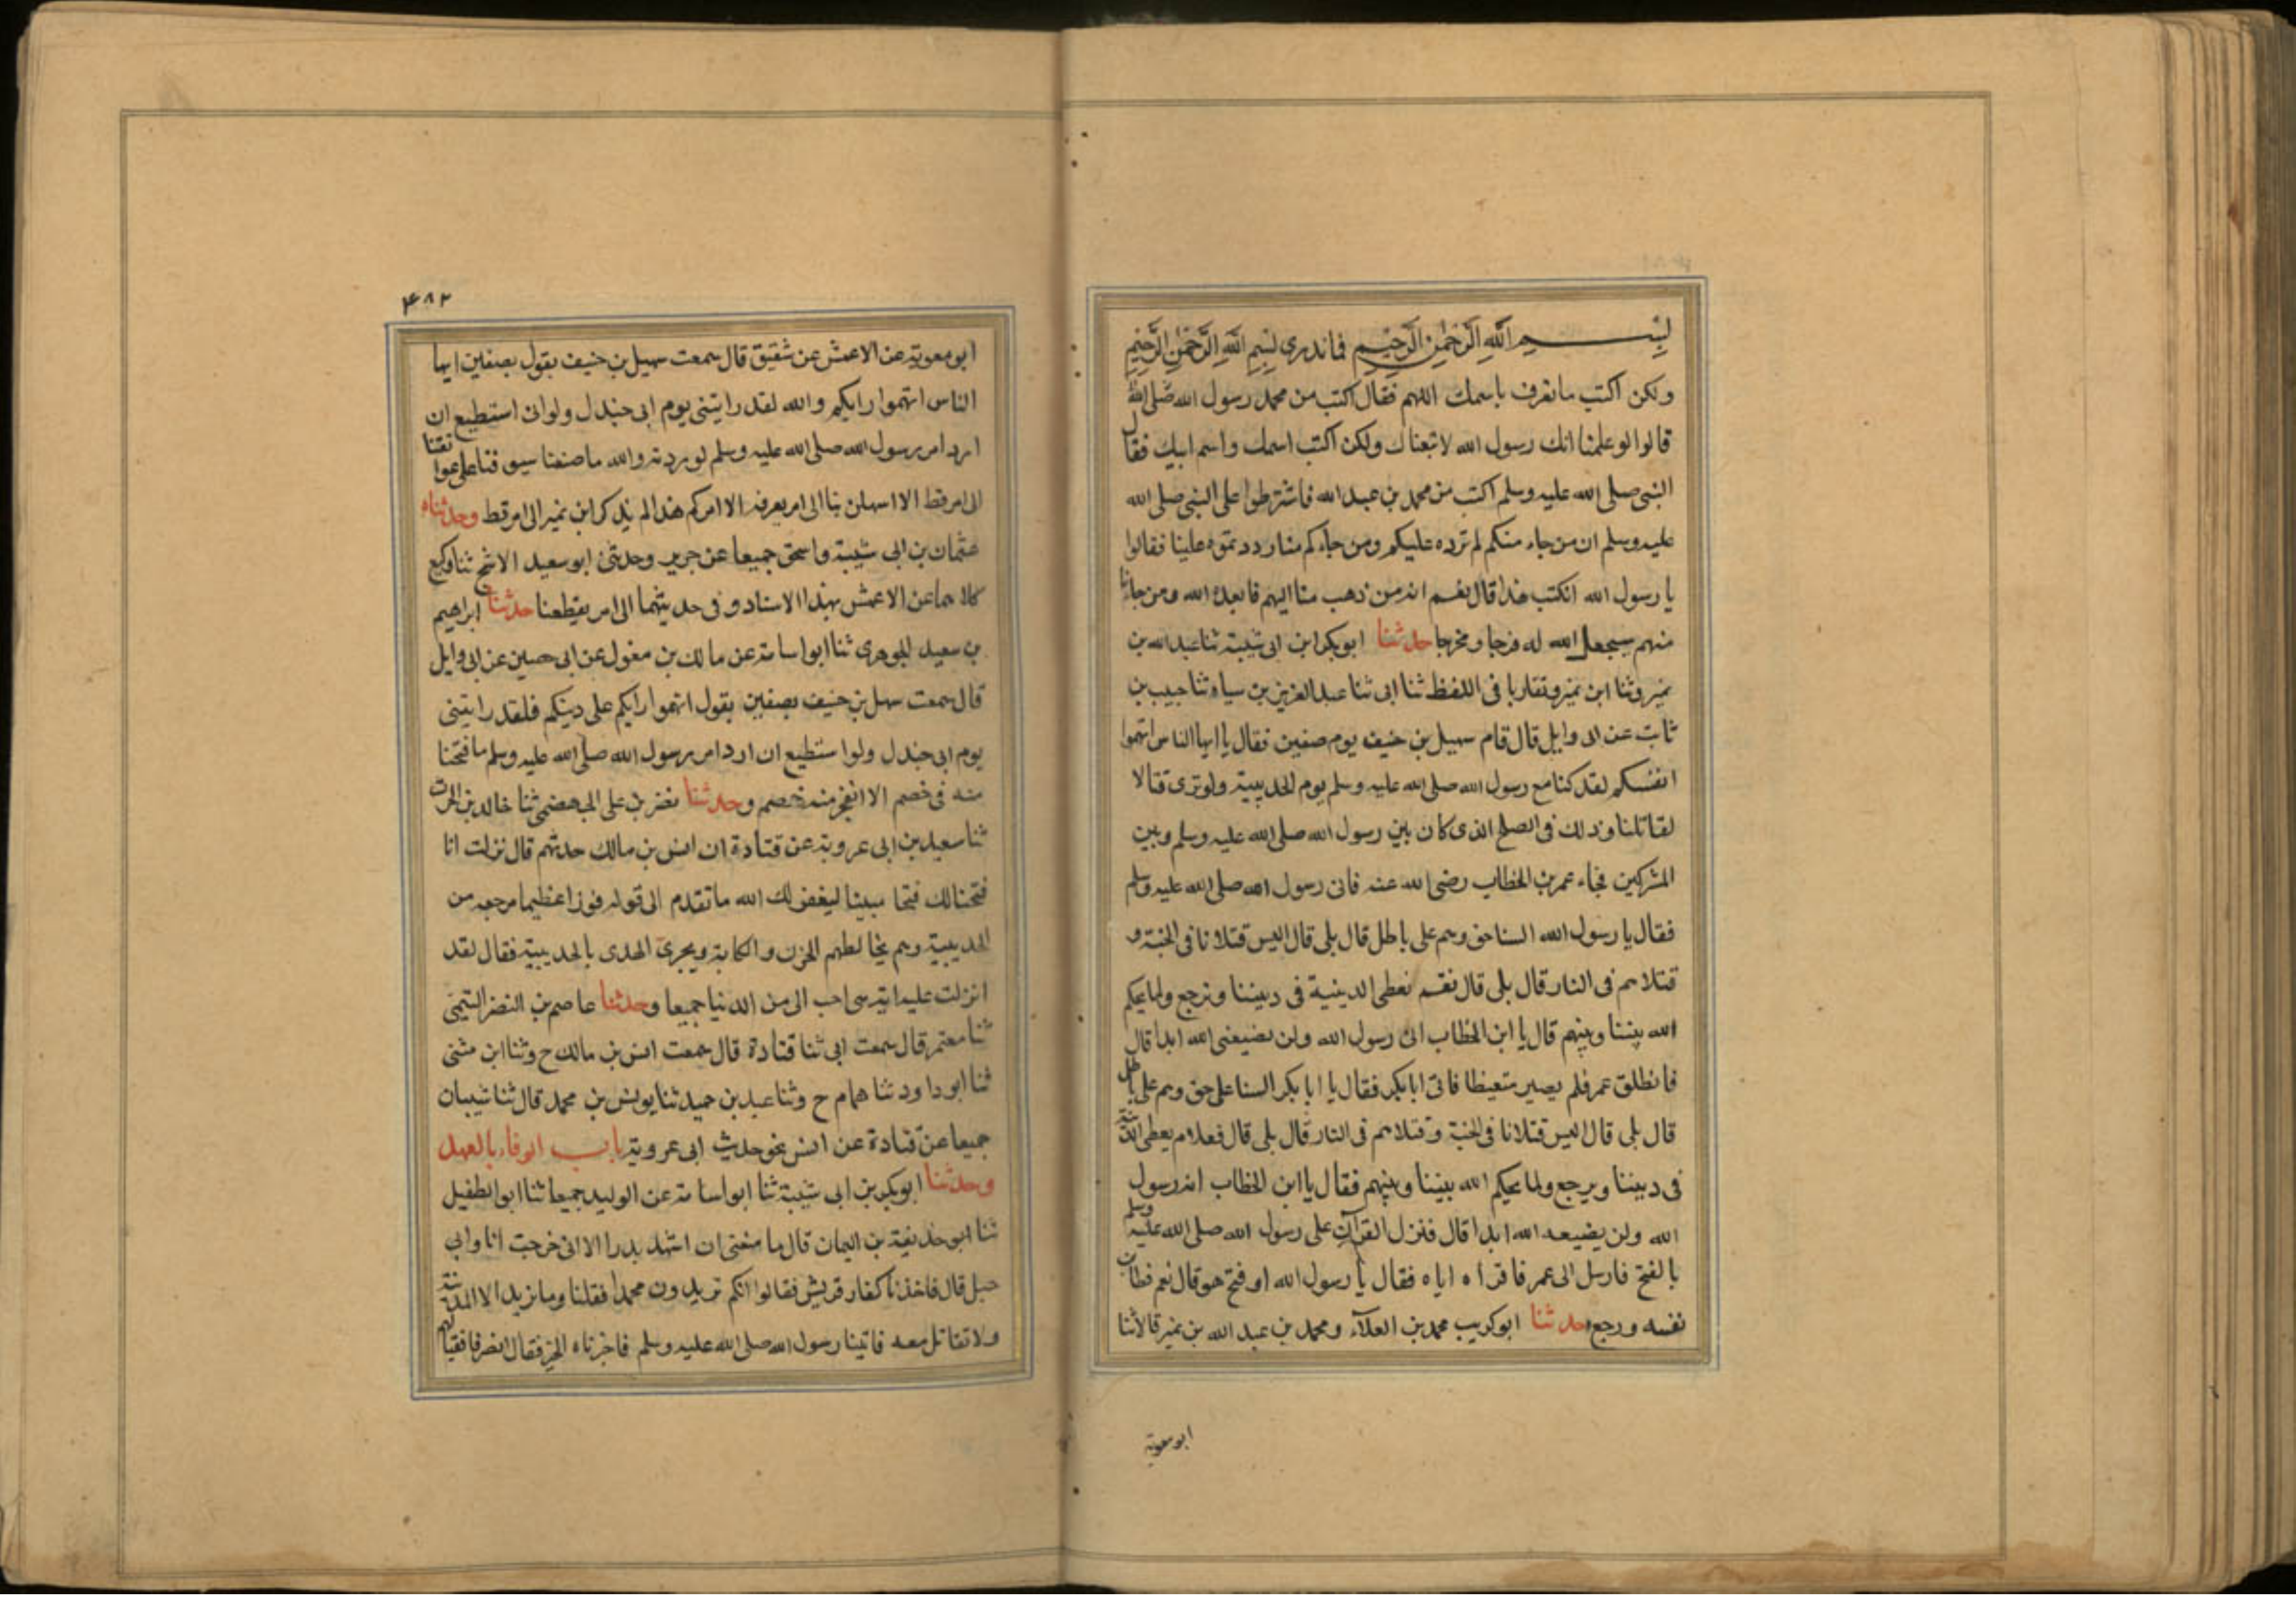 بِسْـــــــمِ اللَّهِ الرَّحْمٰنِ الرَّحِيْمِ فماندری بِسْمِ اللَّهِ الرَّحْمٰنِ الرَّحِيْمِ
ولكن اكتب مانعرف باسمك اللهم فقال اكتب من محمد رسول الله صلى الله
قالوا لو علمنا انك رسول الله لاتبعناك ولكن اكتب اسمك واسم ابيك فقال
النبي صلى الله عليه وسلم اكتب من محمد بن عبد الله فاشترطوا على النبي صلى الله
عليه وسلم ان من جاء منكم لم نرده عليكم ومن جاءكم منا رددتموه علينا فقالوا
يا رسول الله انكتب هذا قال نعم انه من ذهب منا اليهم فابعده الله ومن جاءنا
منهم سيجعل الله له فرجا ومخرجا حدثنا ابو بكر ابن ابى شيبة ثنا عبد الله بن
نمير وثنا ابن نمير وتقاربا فى اللفظ ثنا ابى ثنا عبد العزيز بن سياه ثنا حبيب بن
ثابت عن ابى وايل قال قام سهيل بن حنيف يوم صفين فقال يا ايها الناس اتهموا
انفسكم لقد كنا مع رسول الله صلى الله عليه وسلم يوم الحديبية ولو نرى قتالا
لقاتلنا وذلك فى الصلح الذى كان بين رسول الله صلى الله عليه وسلم وبين
المشركين فجاء عمر بن الخطاب رضى الله عنه فاتى رسول الله صلى الله عليه وسلم
فقال يا رسول الله السنا حق وهم على باطل قال بلى قال اليس قتلانا فى الجنة و
قتلاهم فى النار قال بلى قال نعطى الدينية فى ديننا ونرجع ولما يحكم
الله بيننا وبينهم قال يا ابن الخطاب انى رسول الله ولن يضيعنى الله ابدا قال
فانطلق عمر فلم يصبر متغيظا فاتى ابا بكر فقال يا ابا بكر السنا على حق وهم على باطل
قال بلى قال اليس قتلانا فى الجنة وقتلاهم فى النار قال بلى قال فعلام يعطى الدنية
فى ديننا ويرجع ولما يحكم الله بيننا وبينهم فقال يا ابن الخطاب انه رسول
الله ولن يضيعه الله ابدا قال فنزل القرآن على رسول الله صلى الله عليه وسلم
بالفتح فارسل الى عمر فاقرأه اياه فقال يا رسول الله او فتح هو قال نعم فطابت
نفسه ورجع حدثنا ابو كريب محمد بن العلآء ومحمد بن عبد الله بن نمير قالا ثنا
ابو معوية
۴۸۲
ابو معوية عن الاعمش عن شقيق قال سمعت سهيل بن حنيف يقول بصفين ايها
الناس اتهموا رايكم والله لقد رايتنى يوم ابى جندل ولو انى استطيع ان
ارد امر رسول الله صلى الله عليه وسلم لرددته والله ما صنعنا سيوفنا على عواتقنا
الى امر قط الا اسهلن بنا الى امر يعرفه الا امركم هذا لم يذكر ابن نمير الى امر قط وحدثناه
عثمان بن ابى شيبة واسحق جميعا عن جرير وحدثنى ابو سعيد الاشج ثنا وكيع
كلاهما عن الاعمش بهذا الاسناد وفى حديثهما الى امر يفظعنا حدثنا ابراهيم
بن سعيد الجوهرى ثنا ابو اسامة عن مالك بن مغول عن ابى حصين عن ابى وايل
قال سمعت سهل بن حنيف بصفين يقول اتهموا رايكم على دينكم فلقد رايتنى
يوم ابى جندل ولو استطيع ان ارد امر رسول الله صلى الله عليه وسلم ما فتحنا
منه فى خصم الا انفجر منه خصم وحدثنا نصر بن على الجهضمى ثنا خالد بن الحرث
ثنا سعيد بن ابى عروبة عن قتادة ان انس بن مالك حدثهم قال نزلت انا
فتحنا لك فتحا مبينا ليغفر لك الله ما تقدم الى قوله فوزا عظيما مرجعه من
الحديبية وهم يخالطهم الحزن والكابة ويجرى الهدى بالحديبية فقال لقد
انزلت عليه اية هى احب الى من الدنيا جميعا وحدثنا عاصم بن النضر التيمى
ثنا معتمر قال سمعت ابى ثنا قتادة قال سمعت انس بن مالك ح وثنا ابن مثنى
ثنا ابو داود ثنا همام ح وثنا عبد بن حميد ثنا يونس بن محمد قال ثنا شيبان
جميعا عن قتادة عن انس نحو حديث ابى عروبة باب الوفاء بالعهد
وحدثنا ابو بكر بن ابى شيبة ثنا ابو اسامة عن الوليد جميعا ثنا ابو الطفيل
ثنا ابو حذيفة بن اليمان قال ما منعنى ان اشهد بدرا الا انى خرجت انا وابى
حبل قال فاخذنا كفار قريش فقالوا انكم تريدون محمدا فقلنا وما نريد الا المدينة
ولا تقاتل معه فاتينا رسول الله صلى الله عليه وسلم فاخبرناه الخبر فقال انصرفا